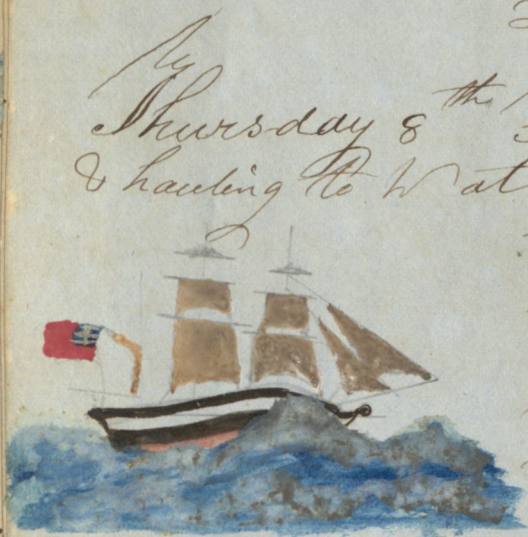 by
Thursday 8 the
& hauling to W at